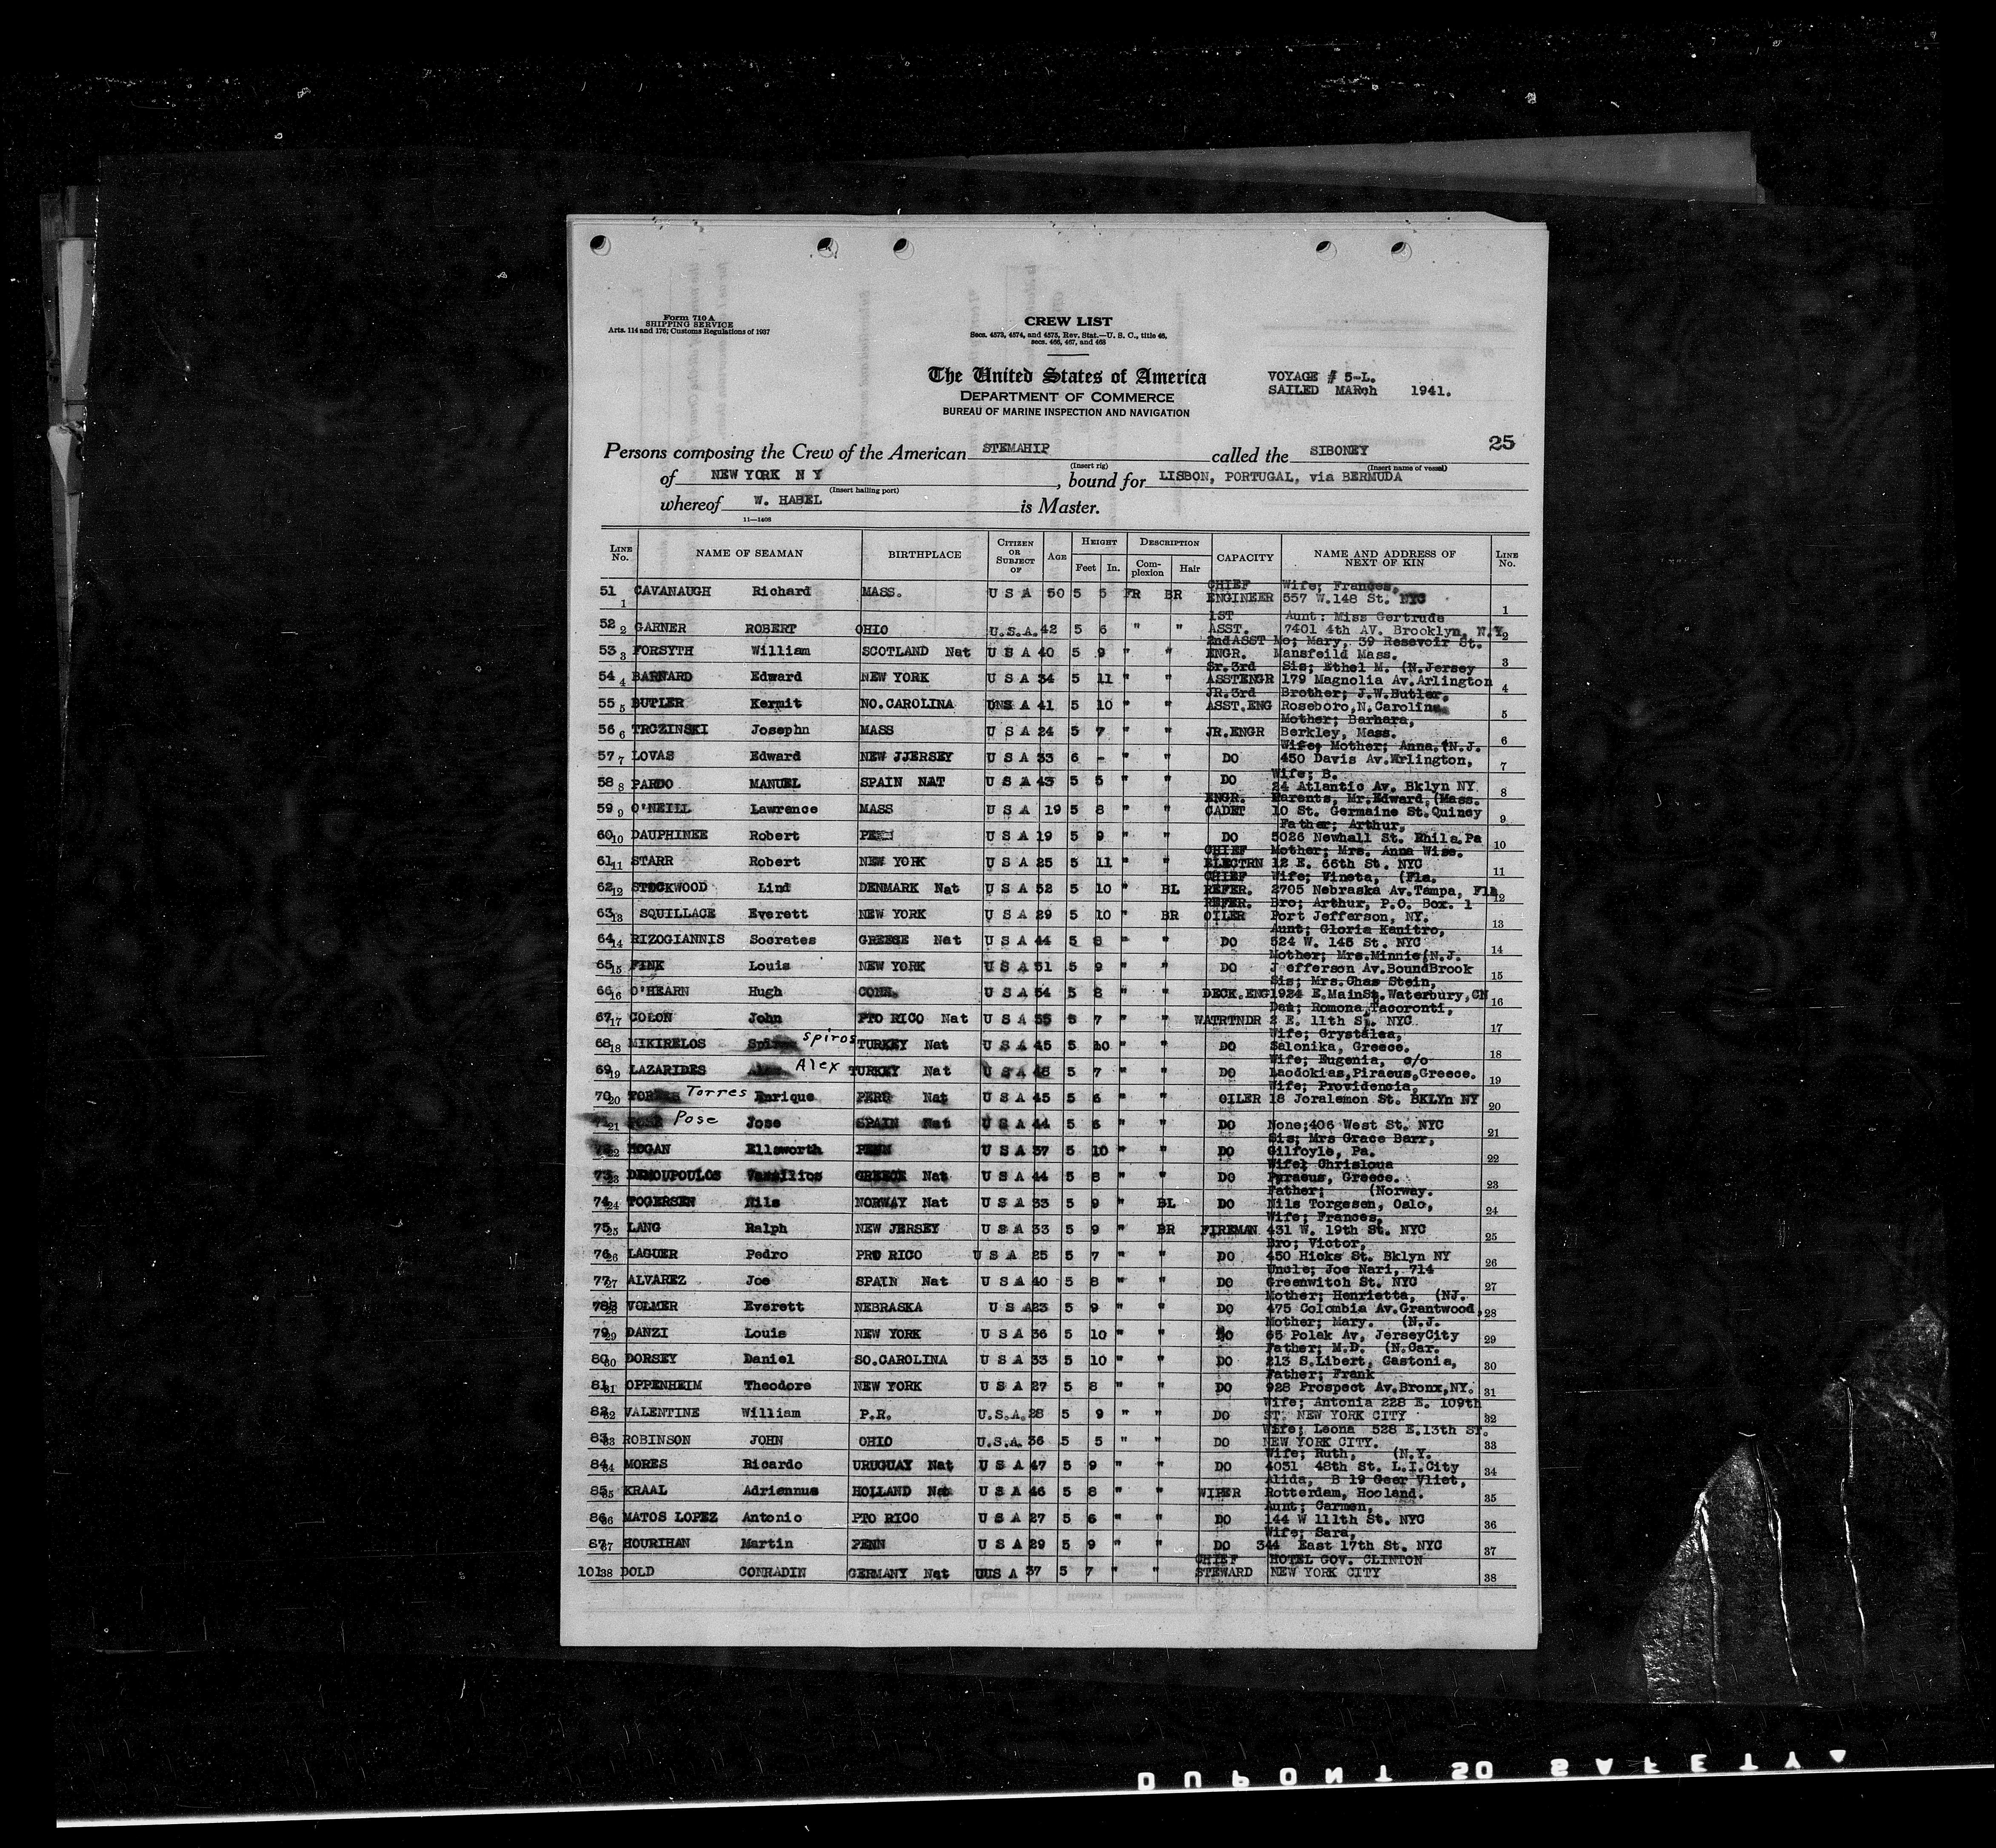 Form 710 A
SHIPPING SERVICE
Arts. 114 and 176; Customs Regulations of 1937
CREW LIST
Secs. 4573, 4574, and 4575, Rev. Stat.—U. S. C., title 46,
secs. 466, 467, and 468
The United States of America
DEPARTMENT OF COMMERCE
BUREAU OF MARINE INSPECTION AND NAVIGATION
VOYAGE # 5-L.
SAILED MARch 1941.
25
Persons composing the Crew of the American STEMAHIP called the SIBONEY
(Insert rig) (Insert name of vessel)
of NEW YORK N Y, bound for LISBON, PORTUGAL, via BERMUDA
(Insert hailing port)
whereof W. HABEL is Master.
11—1408
LINE No. NAME OF SEAMAN BIRTHPLACE CITIZEN OR SUBJECT OF AGE HEIGHT Feet In. DESCRIPTION Complexion Hair CAPACITY NAME AND ADDRESS OF NEXT OF KIN LINE No.
CHIEF Wife; Frances,
51 1 CAVANAUGH Richard MASS. U S A 50 5 5 FR BR ENGINEER 557 W.148 St. NYC 1
1ST Aunt: Miss Gertrude
52 2 GARNER ROBERT OHIO U.S.A. 42 5 6 " " ASST. 7401 4th AV. Brooklyn, N.Y. 2
2nd ASST Mo; Mary, 39 Resevoir St.
53 3 FORSYTH William SCOTLAND Nat U S A 40 5 9 " " ENGR. Mansfeild Mass. 3
Sr.3rd Sis; Ethel M. (N.Jersey
54 4 BARNARD Edward NEW YORK U S A 34 5 11 " " ASSTENGR 179 Magnolia Av.Arlington 4
JR.3rd Brother; J.W.Butler,
55 5 BUTLER Kermit NO.CAROLINA U S A 41 5 10 " " ASST.ENG Roseboro,N.Carolina 5
Mother; Barhara,
56 6 TROZINSKI Josephn MASS U S A 24 5 7 " " JR.ENGR Berkley, Mass. 6
Wife; Mother; Anna.(N.J.
57 7 LOVAS Edward NEW JJERSEY U S A 33 6 - " " DO 450 Davis Av.Arlington, 7
Wife; B.
58 8 PARDO MANUEL SPAIN NAT U S A 43 5 5 " " DO 24 Atlantic Av. Bklyn NY 8
ENGR. Parents, Mr.Edward,(Mass.
59 9 O'NEILL Lawrence MASS U S A 19 5 8 " " CADET 10 St. Germaine St.Quincy 9
Father; Arthur,
60 10 DAUPHINEE Robert PENN U S A 19 5 9 " " DO 5026 Newhall St. Phila.Pa 10
CHIEF Mother; Mrs. Anna Wise.
61 11 STARR Robert NEW YORK U S A 25 5 11 " " ELECTRN 12 E. 66th St. NYC 11
CHIEF Wife; Vineta, (Fla.
62 12 STOCKWOOD Lind DENMARK Nat U S A 52 5 10 " BL REFER. 2705 Nebraska Av.Tampa, Fla 12
REFER. Bro; Arthur, P.O. Box. 1
63 13 SQUILLACE Everett NEW YORK U S A 29 5 10 " BR OILER Port Jefferson, NY. 13
Aunt; Gloria Kanitro,
64 14 RIZOGIANNIS Socrates GREESE Nat U S A 44 5 8 " " DO 524 W. 146 St. NYC 14
Mother; Mrs.Minnie(N.J.
65 15 FINK Louis NEW YORK U S A 31 5 9 " " DO Jefferson Av.BoundBrook 15
Sis; Mrs.Chas Stein,
66 16 O'HEARN Hugh CONN. U S A 54 5 8 " " DECK.ENG 1924 E.MainSt.Waterbury,CN 16
Dat; Romona Tacoronti,
67 17 COLON John PTO RICO Nat U S A 55 5 7 " " WATRTNDR 2 E. 11th St. NYC 17
Wife; Grystalea,
68 18 MIKIRELOS Spiros TURKEY Nat U S A 45 5 10 " " DO Salonika, Greece. 18
Wife; Eugenia, c/o
69 19 LAZARIDES Alex TURKEY Nat U S A 48 5 7 " " DO Laodokias,Piraeus,Greece. 19
Wife; Providencia,
70 20 Torres Enrique PERU Nat U S A 45 5 6 " " OILER 18 Joralemon St. BKLYn NY 20
21 Pose Jose SPAIN Nat U S A 44 5 6 " " DO None;406 West St. NYC 21
Sis; Mrs Grace Barr,
72 22 HOGAN Ellsworth PENN U S A 37 5 10 " " DO Gilfoyle, Pa. 22
Wife; Chrisloua
73 23 DEMOUPOULOS Vassilios GREECE Nat U S A 44 5 8 " " DO Pyraeus, Greece. 23
Father; (Norway.
74 24 TOGERSEN Nils NORWAY Nat U S A 33 5 9 " BL DO Nils Torgesen, Oslo, 24
Wife; Frances,
75 25 LANG Ralph NEW JERSEY U S A 33 5 9 " BR FIREMAN 431 W. 19th St. NYC 25
Bro; Victor,
76 26 LAGUER Pedro PRO RICO U S A 25 5 7 " " DO 450 Hicks St. Bklyn NY 26
Uncle; Joe Nari, 714
77 27 ALVAREZ Joe SPAIN Nat U S A 40 5 8 " " DO Greenwitch St. NYC 27
Mother; Henrietta, (NJ.
78 28 VOLMER Everett NEBRASKA U S A 23 5 9 " " DO 475 Colombia Av.Grantwood, 28
Mother; Mary. (N.J.
79 29 DANZI Louis NEW YORK U S A 36 5 10 " " DO 65 Polak Av, JerseyCity 29
Father; M.D. (N.Car.
80 30 DORSEY Daniel SO.CAROLINA U S A 33 5 10 " " DO 213 S.Libert, Gastonia, 30
Father; Frank
81 31 OPPENHEIM Theodore NEW YORK U S A 27 5 8 " " DO 928 Prospect Av.Bronx,NY. 31
Wife; Antonia 228 E. 109th
82 32 VALENTINE William P.R. U.S.A. 28 5 9 " " DO ST. NEW YORK CITY 32
Wife; Leona 528 E.13th ST.
83 33 ROBINSON JOHN OHIO U.S.A. 36 5 5 " " DO NEW YORK CITY. 33
Wife; Ruth, (N.Y.
84 34 MORES Ricardo URUGUAY Nat U S A 47 5 9 " " DO 4031 48th St. L.I.City 34
Alida, B 19 Geer Vliet,
85 35 KRAAL Adriannus HOLLAND Nat U S A 46 5 8 " " WIPER Rotterdam, Hooland. 35
Aunt; Carmen,
86 36 MATOS LOPEZ Antonio PTO RICO U S A 27 5 6 " " DO 144 W 111th St. NYC 36
Wife; Sara,
87 37 HOURIHAN Martin PENN U S A 29 5 9 " " DO 344 East 17th St. NYC 37
CHIEF HOTEL GOV. CLINTON
101 38 DOLD CONRADIN GERMANY Nat UUS A 37 5 7 " " STEWARD NEW YORK CITY 38
DUPONT SO SAFETY